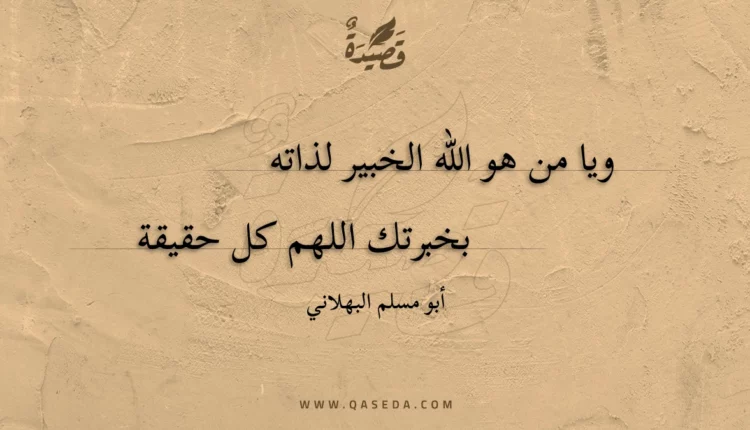 قَصِيدَةٌ
ويا من هو الله الخبير لذاته
بخبرتك اللهم كل حقيقة
أبو مسلم البهلاني
WWW.QASEDA.COM